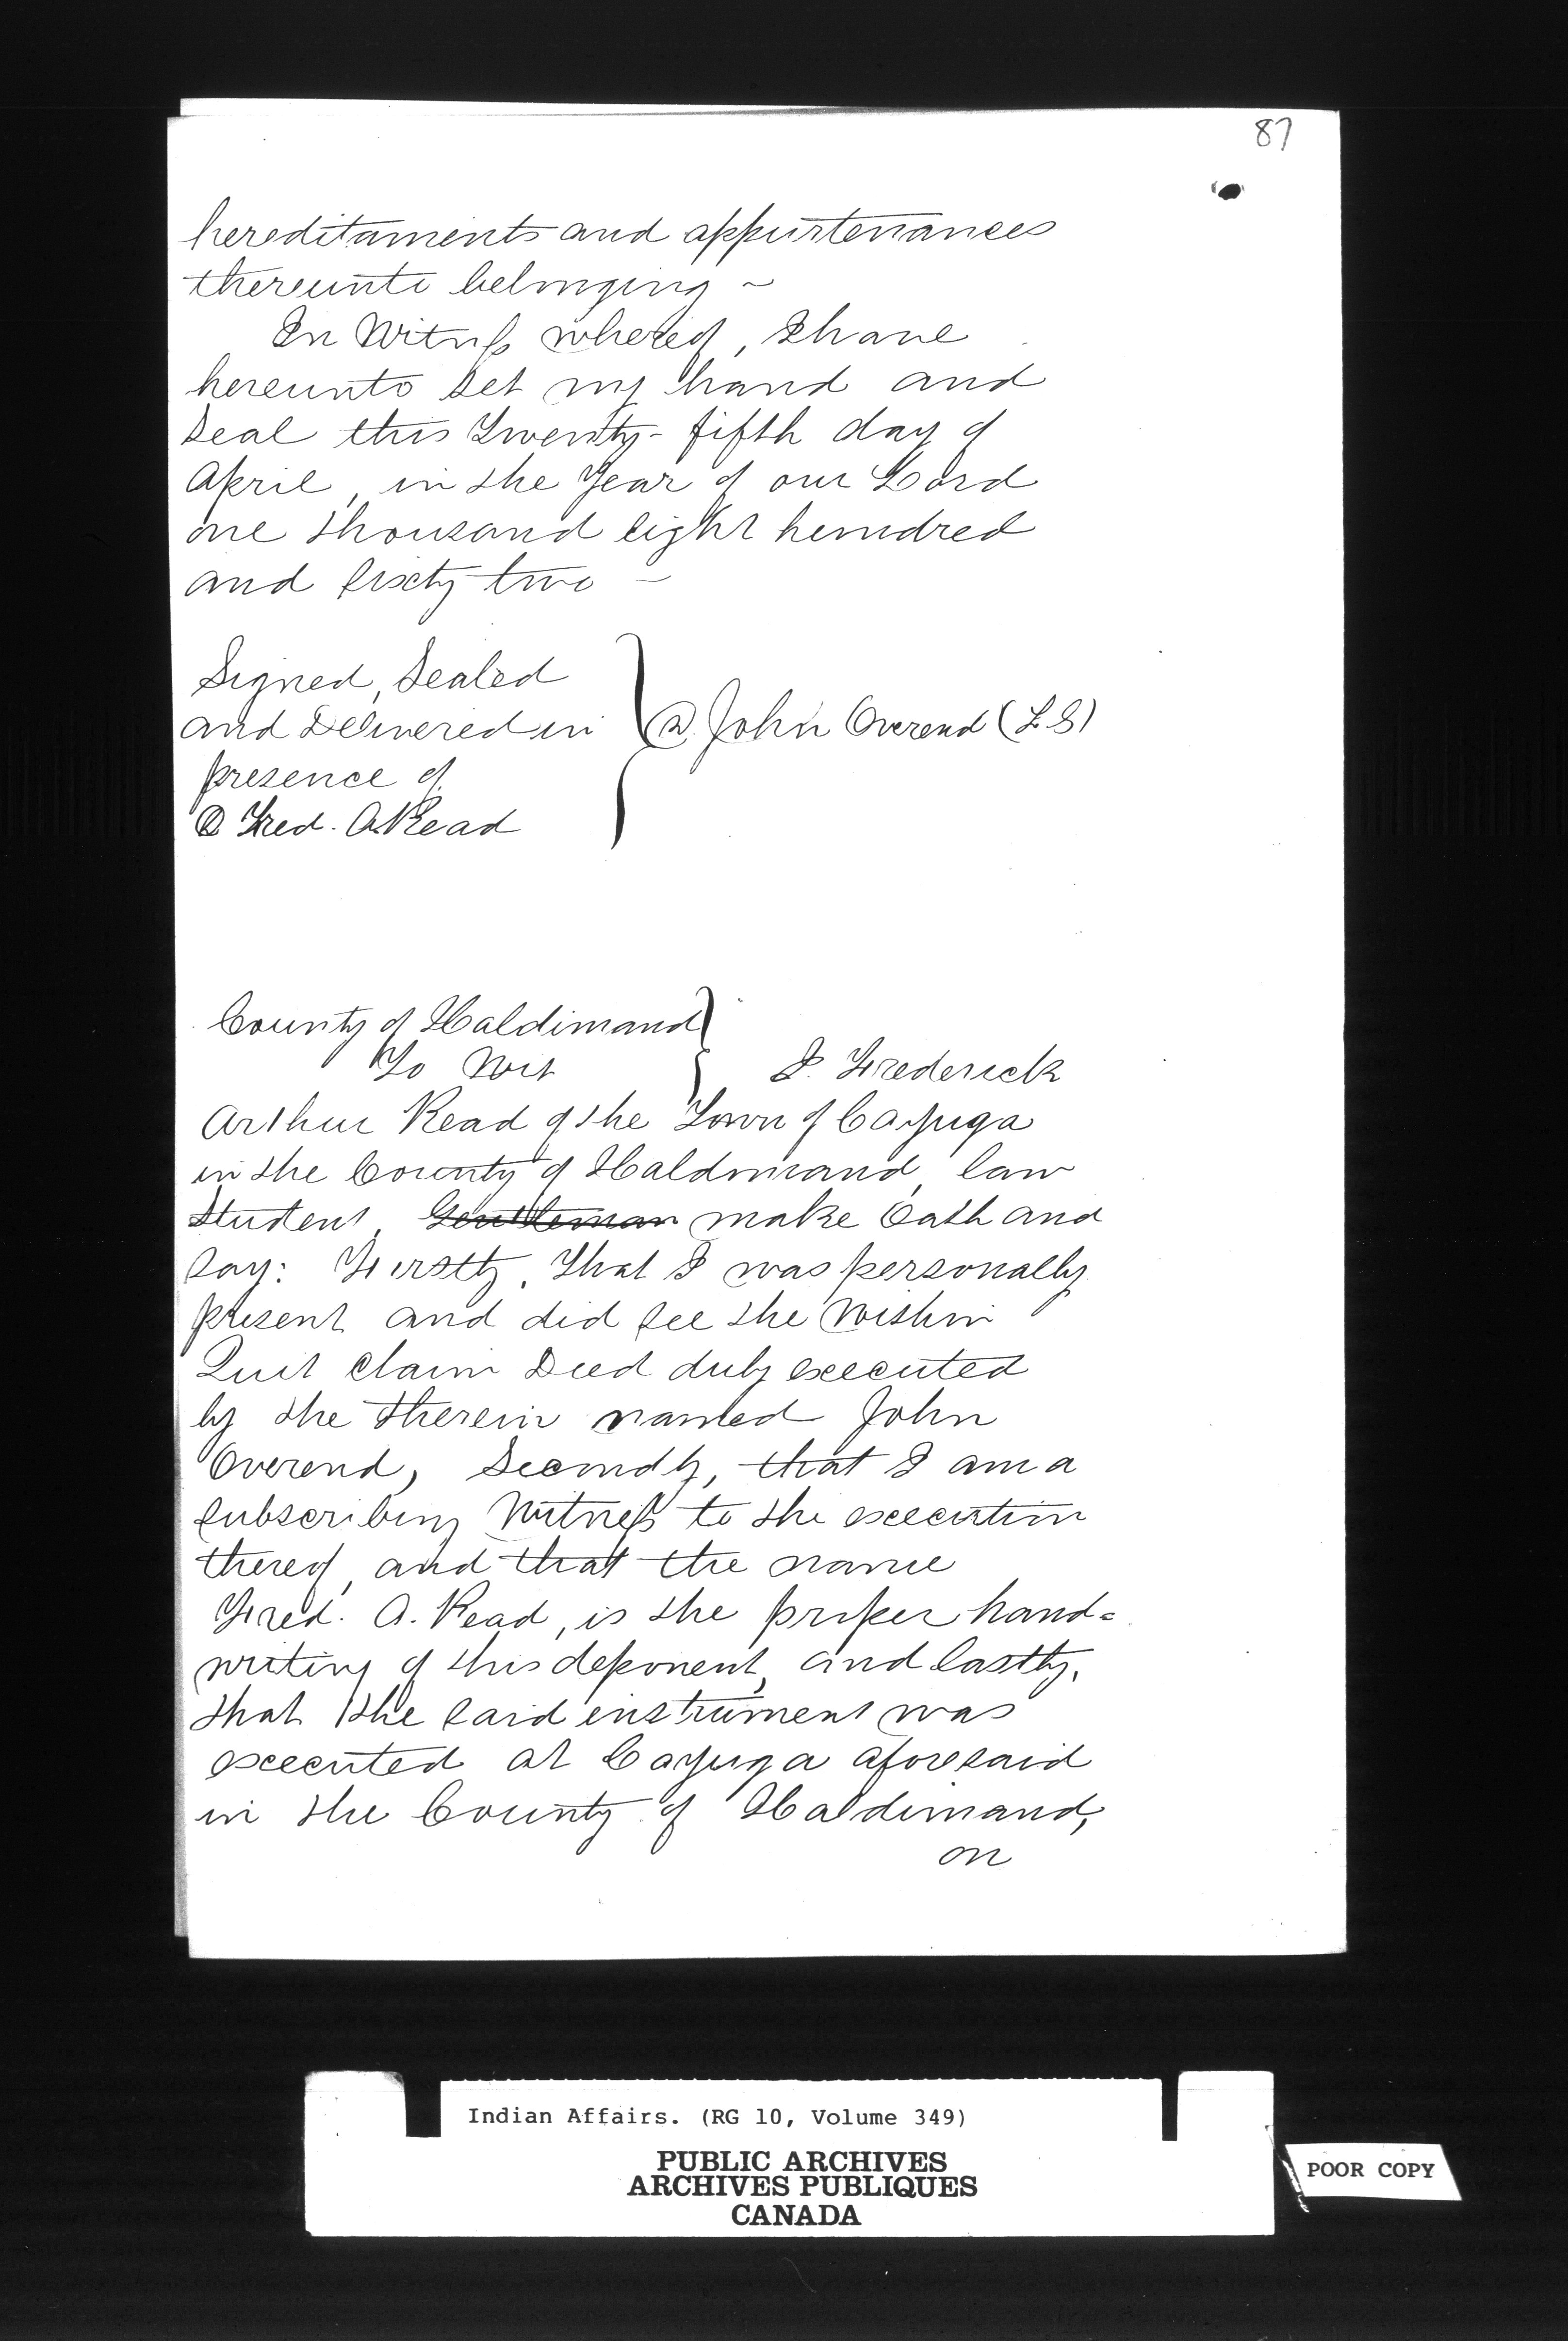 87
hereditaments and appurtenances
thereunto belonging ~
In Witness whereof, I have
hereunto set my hand and
seal this Twenty-fifth day of
April, in the Year of our Lord
one thousand eight hundred
and sixty two —
Signed, Sealed
and Delivered in
presence of
@ Fred. A Read
@ John Overend (L S)
County of Haldimand
To Wit
I. Frederick
Arthur Read of the Town of Cayuga
in the County of Haldimand, law
student, Gentleman make Oath and
say: Firstly, That I was personally
present and did see the within
Quit Claim Deed duly executed
by the therein named John
Overend, Secondly, that I am a
subscribing Witness to the execution
thereof, and that the name
Fred. A. Read, is the proper hand=
writing of this deponent, and lastly,
that the said instrument was
executed at Cayuga aforesaid
in the County of Haldimand,
on
Indian Affairs. (RG 10, Volume 349)
PUBLIC ARCHIVES
ARCHIVES PUBLIQUES
CANADA
POOR COPY